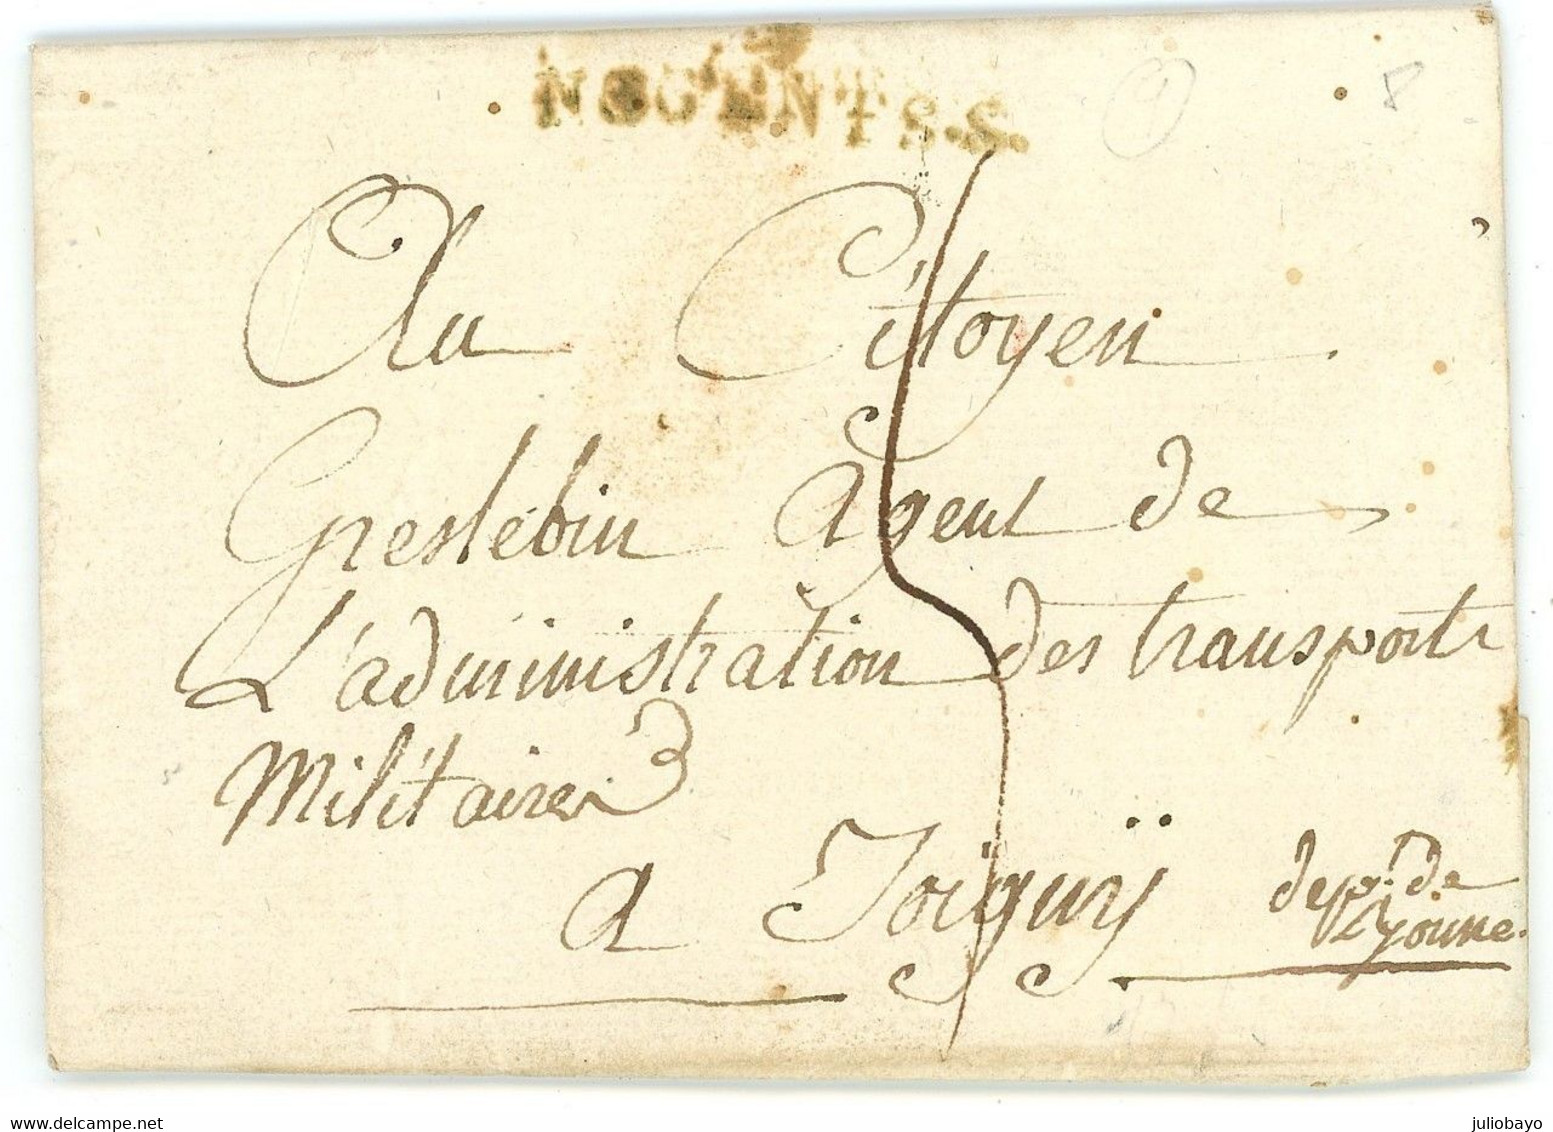 NOGENT S. S.
Au Citoyen
Greslebin Agent de
L'administration des transports
Militaires
a Joigny dept. de
Lyonne.
www.delcampe.net
juliobayo